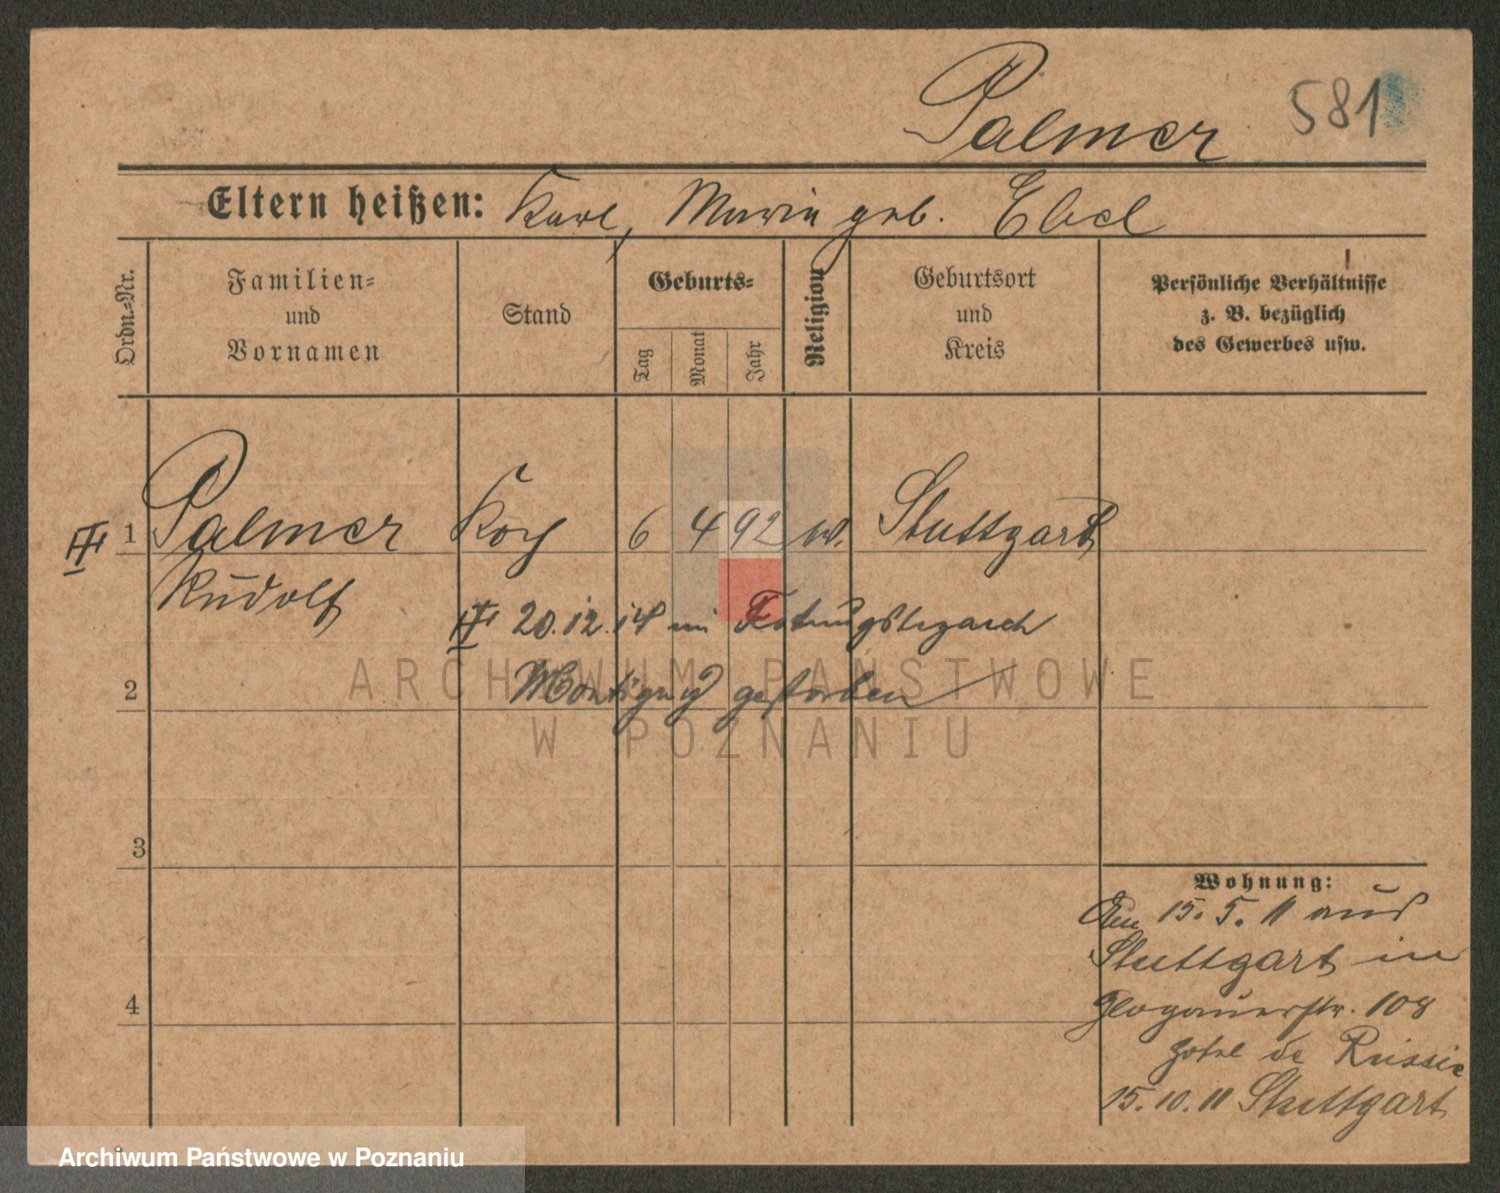 Palmer 581
Eltern heißen: Karl, Maria geb. Ebel
Ordn.-Nr.
Familien-
und
Vornamen
Stand
Geburts-
Tag
Monat
Jahr
Religion
Geburtsort
und
Kreis
Persönliche Verhältnisse
z. B. bezüglich
des Gewerbes usw.
1 Palmer Koch 6 4 92 w. Stuttgart
Rudolf
20.12.14 im Festungslazareth
2 Montigny gestorben
3
4
Wohnung:
Am 15. 5. 11 aus
Stuttgart in
Glogauerstr. 108
Hotel de Russie
15.10.11 Stuttgart
ARCHIWUM PAŃSTWOWE
W POZNANIU
Archiwum Państwowe w Poznaniu